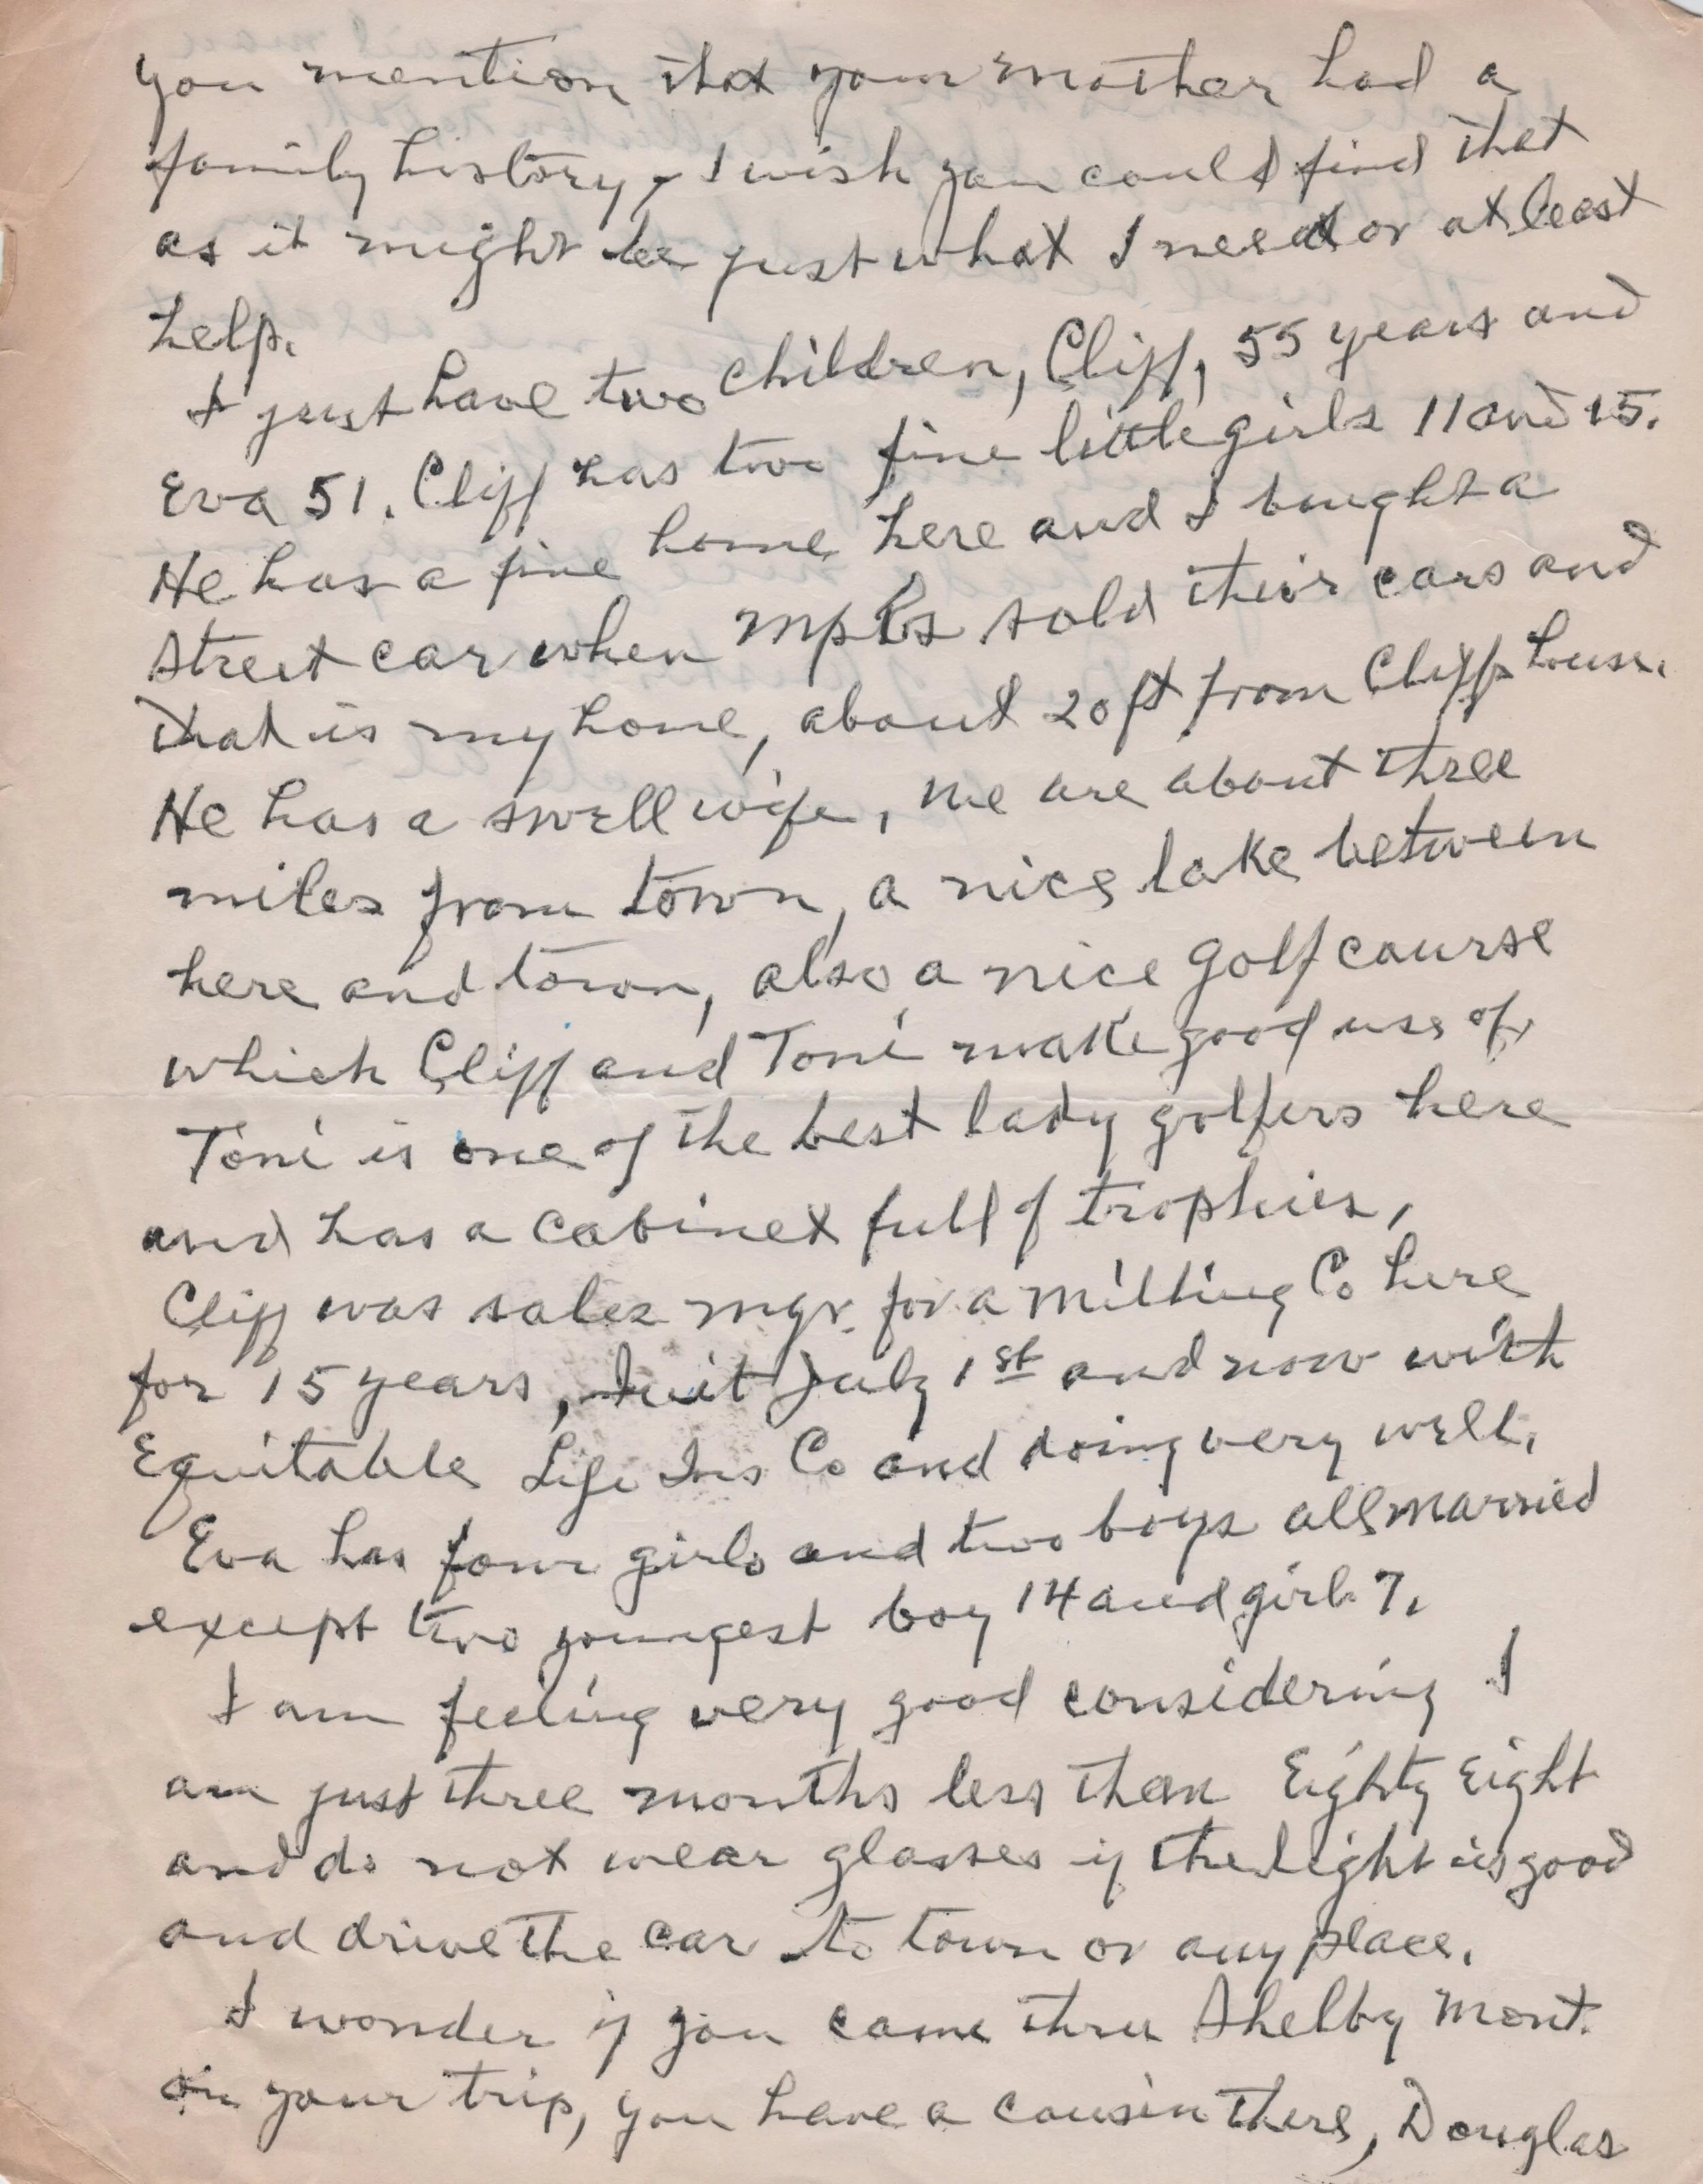 you mention that your mother had a
family history, I wish you could find that
as it might be just what I need or at least
help.
I just have two children, Cliff, 55 years and
Eva 51. Cliff has two fine little girls 11 and 15.
He has a fine home here and I bought a
street car when mpls sold their cars and
that is my home, about 20 ft from Cliffs house.
He has a swell wife, we are about three
miles from town, a nice lake between
here and town, also a nice golf course
which Cliff and Toni make good use of,
Toni is one of the best lady golfers here
and has a cabinet full of trophies,
Cliff was sales mgr. for a Milling Co here
for 15 years, Quit July 1st and now with
Equitable Life Ins Co and doing very well.
Eva has four girls and two boys all married
except two youngest boy 14 and girl 7.
I am feeling very good considering I
am just three months less than Eighty Eight
and do not wear glasses if the light is good
and drive the car to town or any place.
I wonder if you came thru Shelby Mont.
on your trip, you have a cousin there, Douglas